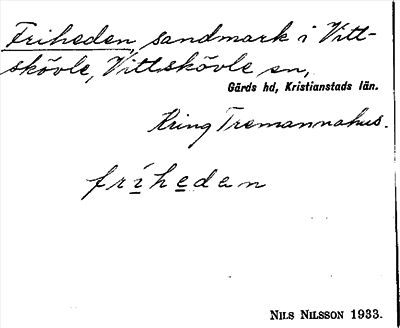 Friheden, sandmark i Vitt-
skövle, Vittskövle sn,
Gärds hd, Kristianstads län.
Kring Tremannahus.
friheden
NILS NILSSON 1933.